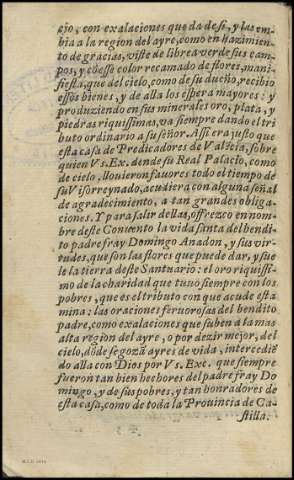 ejo, con exalaciones que da de si, y las em-
bia a la region del ayre, como en hazimien-
to de gracias, viste de librea verde sus cam-
pos, y cõ esse color recamado de flores, mani-
fiesta, que del cielo, como de su dueño, recibio
essos bienes, y de alla los espera mayores: y
produziendo en sus minerales oro, plata, y
piedras riquissimas, va siempre dando el tri-
buto ordinario a su señor. Assi era justo que
esta casa de Predicadores de Valẽcia, sobre
quien Vs. Ex. dende su Real Palacio, como
de cielo, llouieron fauores todo el tiempo de
su Visorreynado, acudiera con alguna señal
de agradecimiento, a tan grandes obliga-
ciones. Y para salir dellas, offrezco en nom-
bre deste Conuento la vida santa del bendi-
to padre fray Domingo Anadon, y sus vir-
tudes, que son las flores que puede dar, y sue
le la tierra deste Santuario: el oro riquissi-
mo de la charidad que tuuo siempre con los
pobres, que es el tributo con que acude esta
mina: las oraciones feruorosas del bendito
padre, como exalaciones que suben a la mas
alta region del ayre, o por dezir mejor, del
cielo, dõde se goza ayres de vida, intercediẽ
do alla con Dios por Vs. Exc. que siempre
fueron tan bien hechores del padre fray Do
mingo, y de sus pobres, y tan honradores de
esta casa, como de toda la Prouincia de Ca-
stilla.